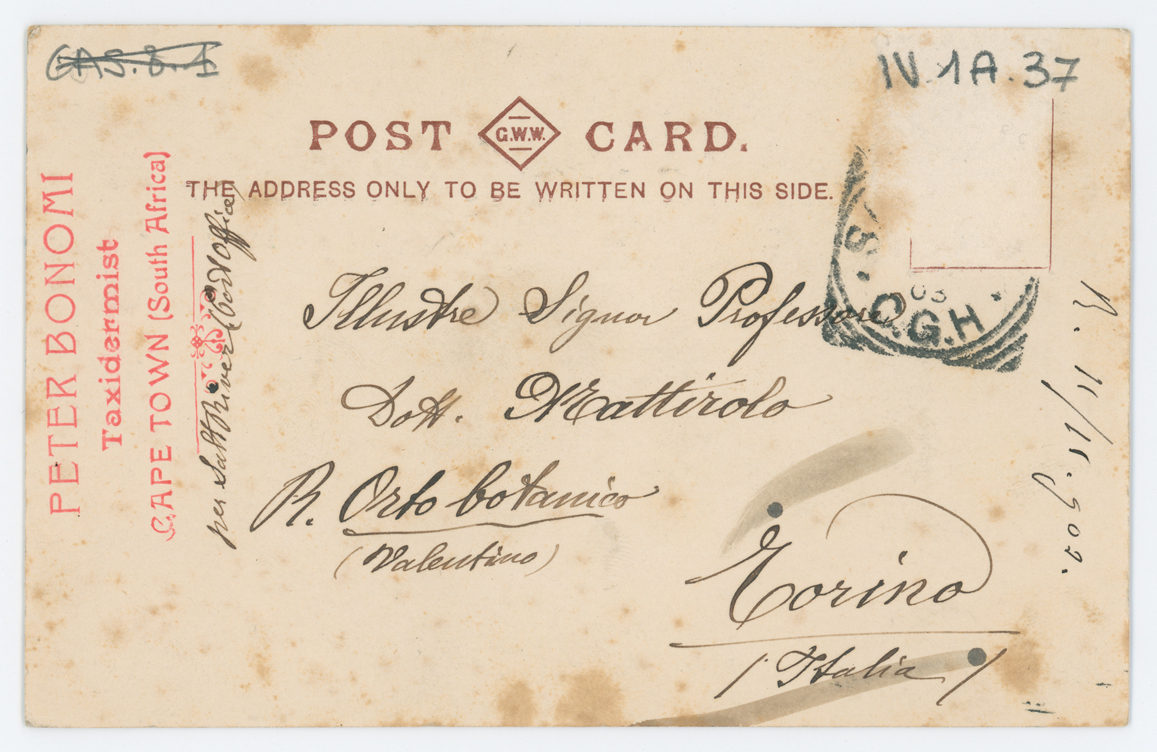 GAS. 8. I
IV. 1A. 37
POST G.W.W. CARD.
THE ADDRESS ONLY TO BE WRITTEN ON THIS SIDE.
PETER BONOMI
Taxidermist
CAPE TOWN (South Africa)
per Salt River (Post Office)
Illustre Signor Professore
Dott. Mattirolo
R. Orto botanico
(Valentino)
Torino
(Italia)
03
.G.H.
R. 11/11.902.